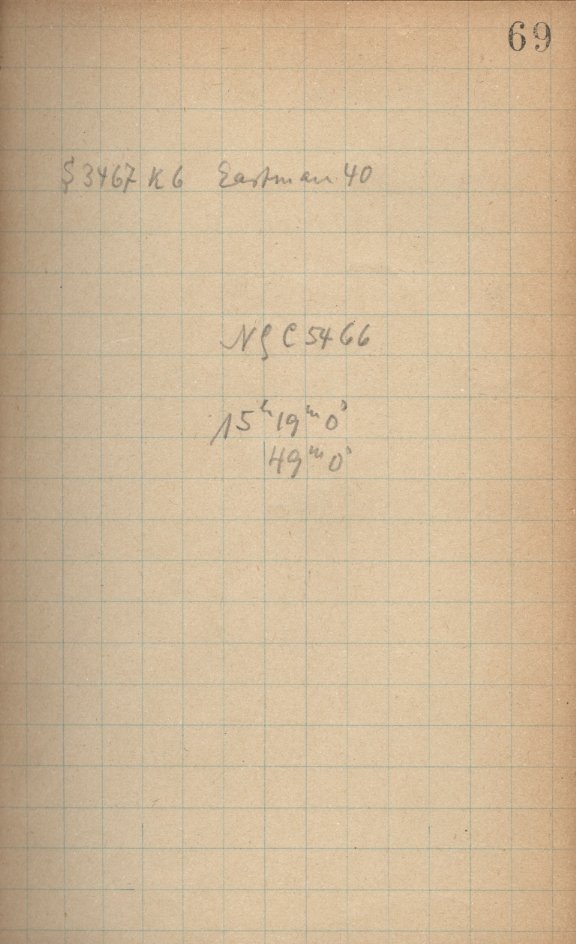 69
S 3467 K 6 Eastman 40
NGC 5466
15ʰ 19ᵐ 0ˢ
49ᵐ 0ˢ